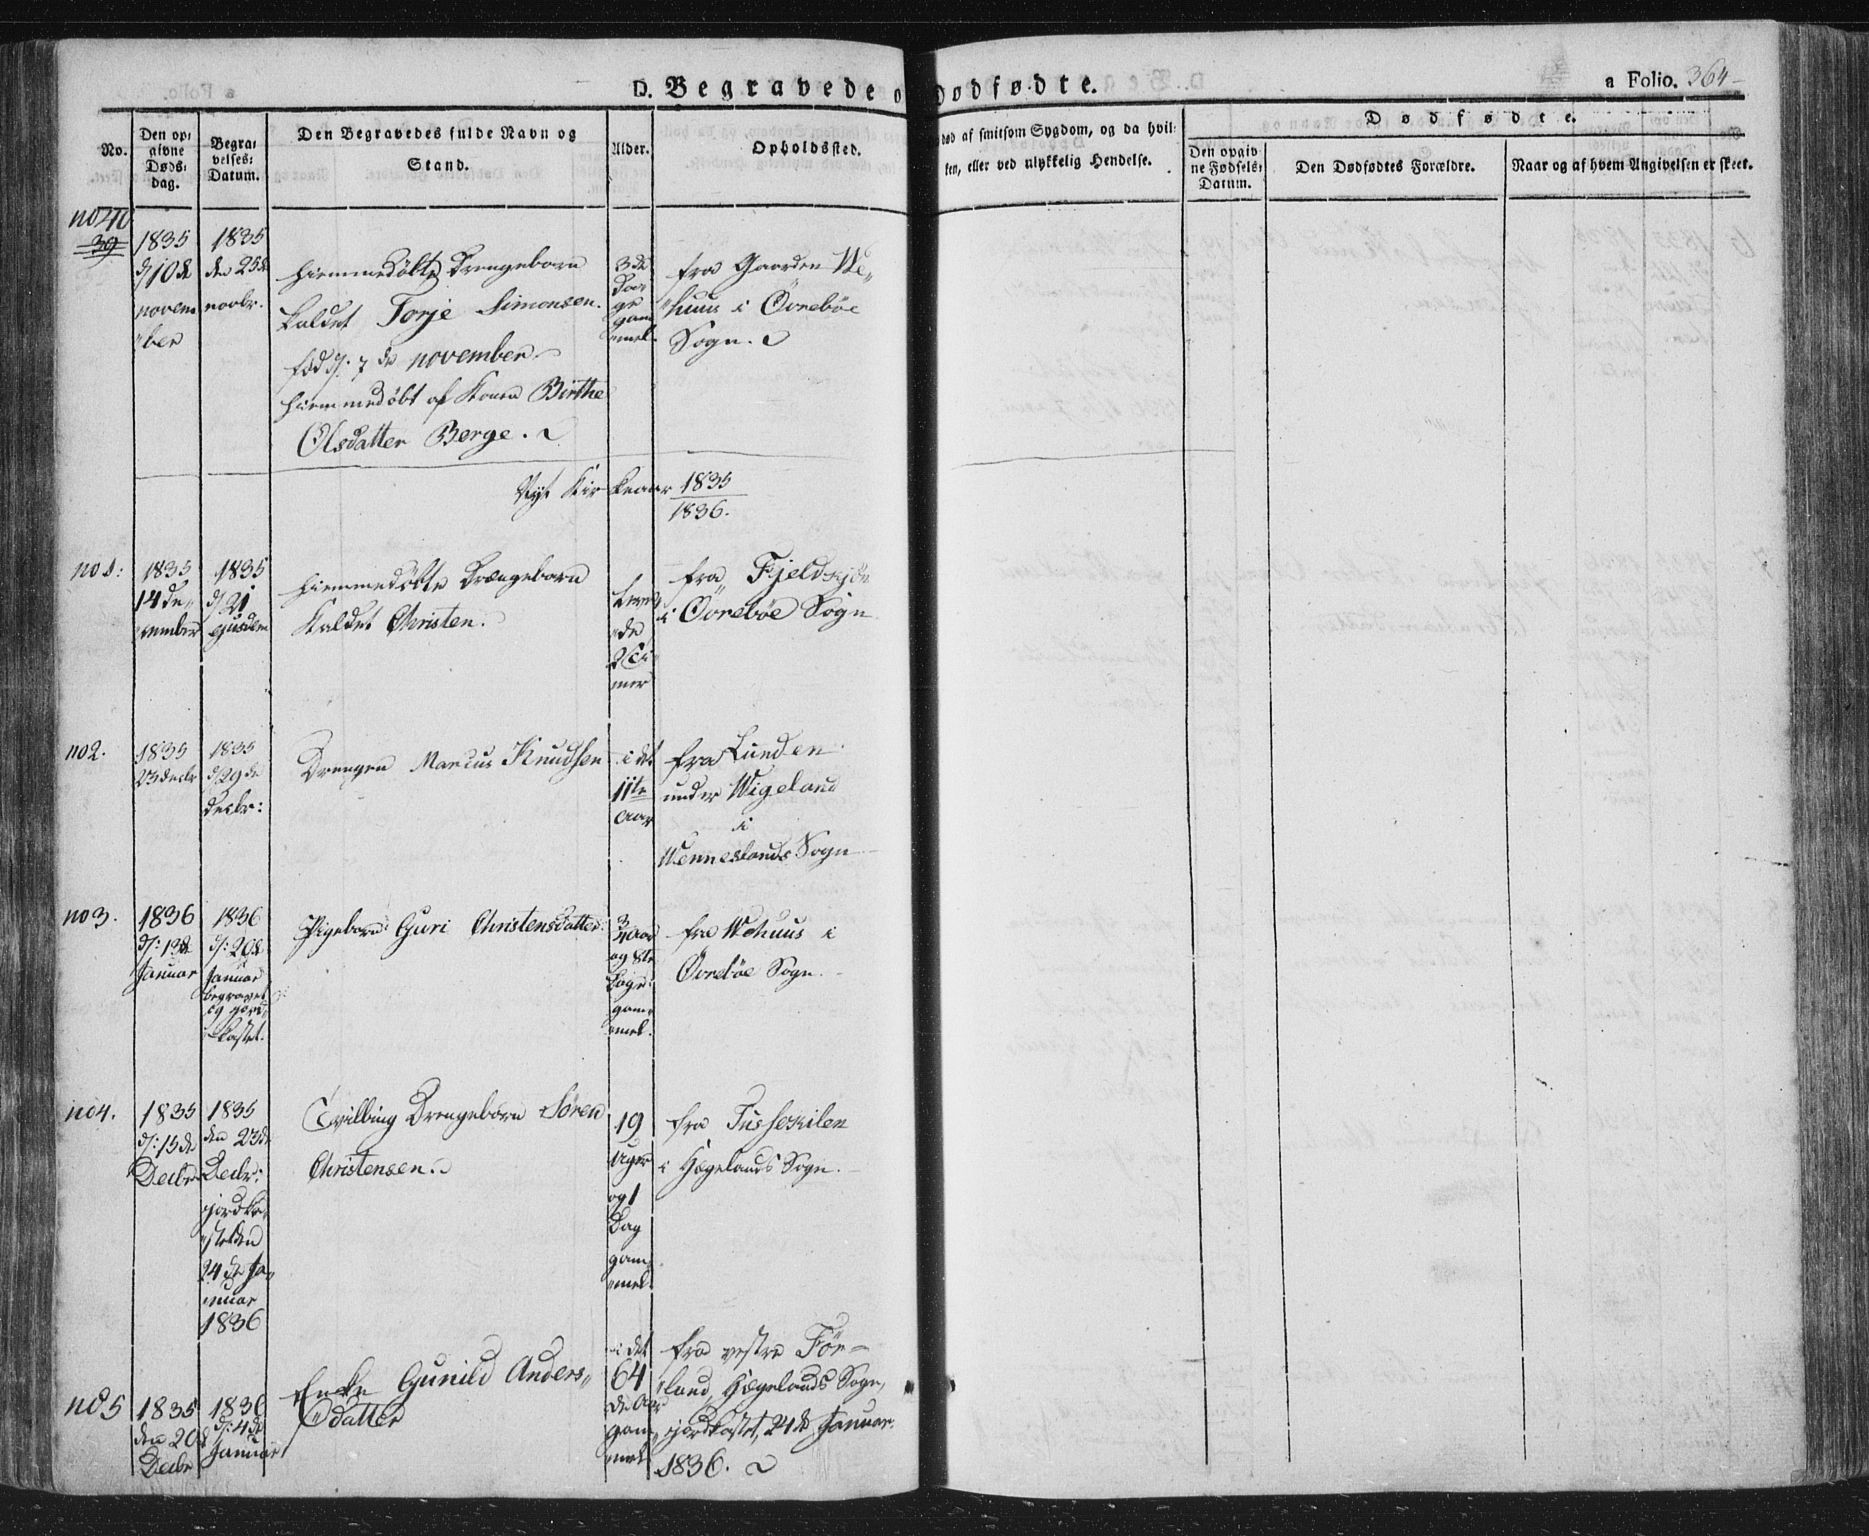 D. Begravede o Dødfødte.
a Folio. 364
No.
Den op=
givne
Døds=
dag.
Begra=
velses=
Datum.
Den Begravedes fulde Navn og
Stand.
Alder.
Opholdssted.
død af smitsom Sygdom, og da hvil=
ken, eller ved ulykkelig Hendelse.
Dødfødte.
Den opgiv=
ne Fødsels=
Datum.
Den Dødfødtes Forældre.
Naar og af hvem Angivelsen er skeet.
no 40
39
1835
d/10de
novem
"ber
1835
den 25de
novbr.
hiemmedøbte Drengebarn
kaldet Torje Simonsen.
fød d: 7de november
hiemmedøbt af Konen Birthe
Olsdatter Berge.
3de
Da=
ge
gam
mel.
fra Gaarden We"
"huus i Øvrebøe
Sogn.
Nyt Kirkeaar 1835
1836.
no 1:
1835
14 de"
cember
1835
d/21
ejusdem
hiemmedøbte Drængebarn
Kaldet Christen.
Leve
"de
2 Ti"
mer
fra Fjeldskjö
i Øvrebøe Sogn
no 2.
1835
23 decbr
1835
d/29de
decbr:
Drengen Marcus Knudsen
i det
11te
Aar
fra Lunden
under Wigeland
i
Wenneslands Sogn
no 3.
1836
d: 13de
Januar
1836
d: 20de
Januar
begravet
og jord
kastet.
Pigebarn Guri Christensdatter
3/4 Aar
og 8te
Dage
gam
mel.
fra Wehuus i
Øvrebøe Sogn.
no 4.
1835
d: 15de
Decbr
1835
den 23de
Decbr:
jordka
"stet den
24de Ja
nuar
1836
Tvilling Drengebarn Sören
Christensen.
19
Uger
og 1
Dag
gam
mel.
fra Tusseskilen
i Hægelands Sogn.
no 5
1835
den 20de
Decbr
1836
d: 4de
Januar
Enke Gunild Anders"
"datter
i det
64
de Aar
gam
mel
fra vestre För=
land, Hægelands Sogn,
jordkastet, 24de Januar
1836.